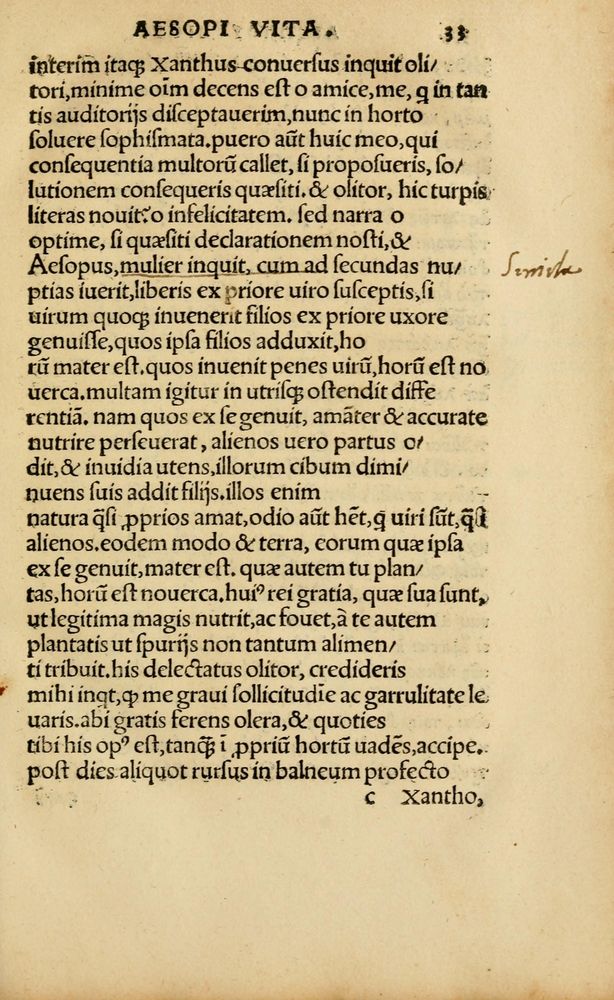 AESOPI VITA. 33
interim̃ itaq; Xanthus conuersus inquit oli/
tori, minime oĩm decens est o amice, me, q̃ in tan
tis auditorijs disceptauerim, nunc in horto
soluere sophismata. puero aũt huic meo, qui
consequentia multorũ callet, si proposueris, so/
lutionem consequeris quæsiti. & olitor, hic turpis
literas nouit? o infelicitatem. sed narra o
optime, si quæsiti declarationem nosti, &
Aesopus, mulier inquit, cum ad secundas nu/
ptias iuerit, liberis ex priore uiro susceptis, si
uirum quoq; inuenerit filios ex priore uxore
genuisse, quos ipsa filios adduxit, ho
rũ mater est. quos inuenit penes uirũ, horũ est no
uerca. multam igitur in utrisq; ostendit diffe
rentiã. nam quos ex se genuit, amãter & accurate
nutrire perseuerat, alienos uero partus o/
dit, & inuidia utens, illorum cibum dimi/
nuens suis addit filijs. illos enim
natura q̃si ꝓprios amat, odio aũt hẽt, q̃ uiri sũt, q̃si
alienos. eodem modo & terra, eorum quæ ipsa
ex se genuit, mater est. quæ autem tu plan/
tas, horũ est nouerca. huiꝰ rei gratia, quæ sua sunt,
ut legitima magis nutrit, ac fouet, à te autem
plantatis ut spurijs non tantum alimen/
ti tribuit. his delectatus olitor, credideris
mihi inqt, ꝙ me graui sollicitudĩe ac garrulitate le
uaris. abi gratis ferens olera, & quoties
tibi his opꝰ est, tanq̃; ĩ ꝓpriũ hortũ uadẽs, accipe.
post dies aliquot rursus in balneum profecto
c Xantho,